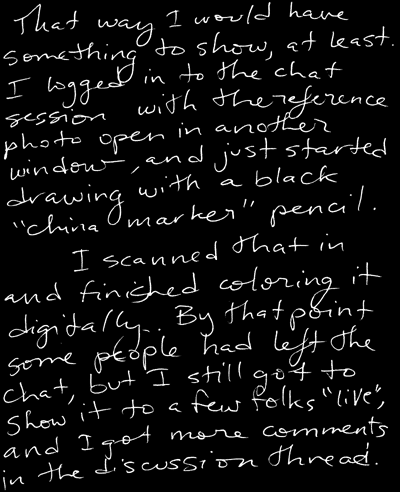 That way I would have
something to show, at least.
I logged in to the chat
session with the reference
photo open in another
window, and just started
drawing with a black
"china marker" pencil.
I scanned that in
and finished coloring it
digitally. By that point
some people had left the
chat, but I still got to
show it to a few folks "live",
and I got more comments
in the discussion thread.